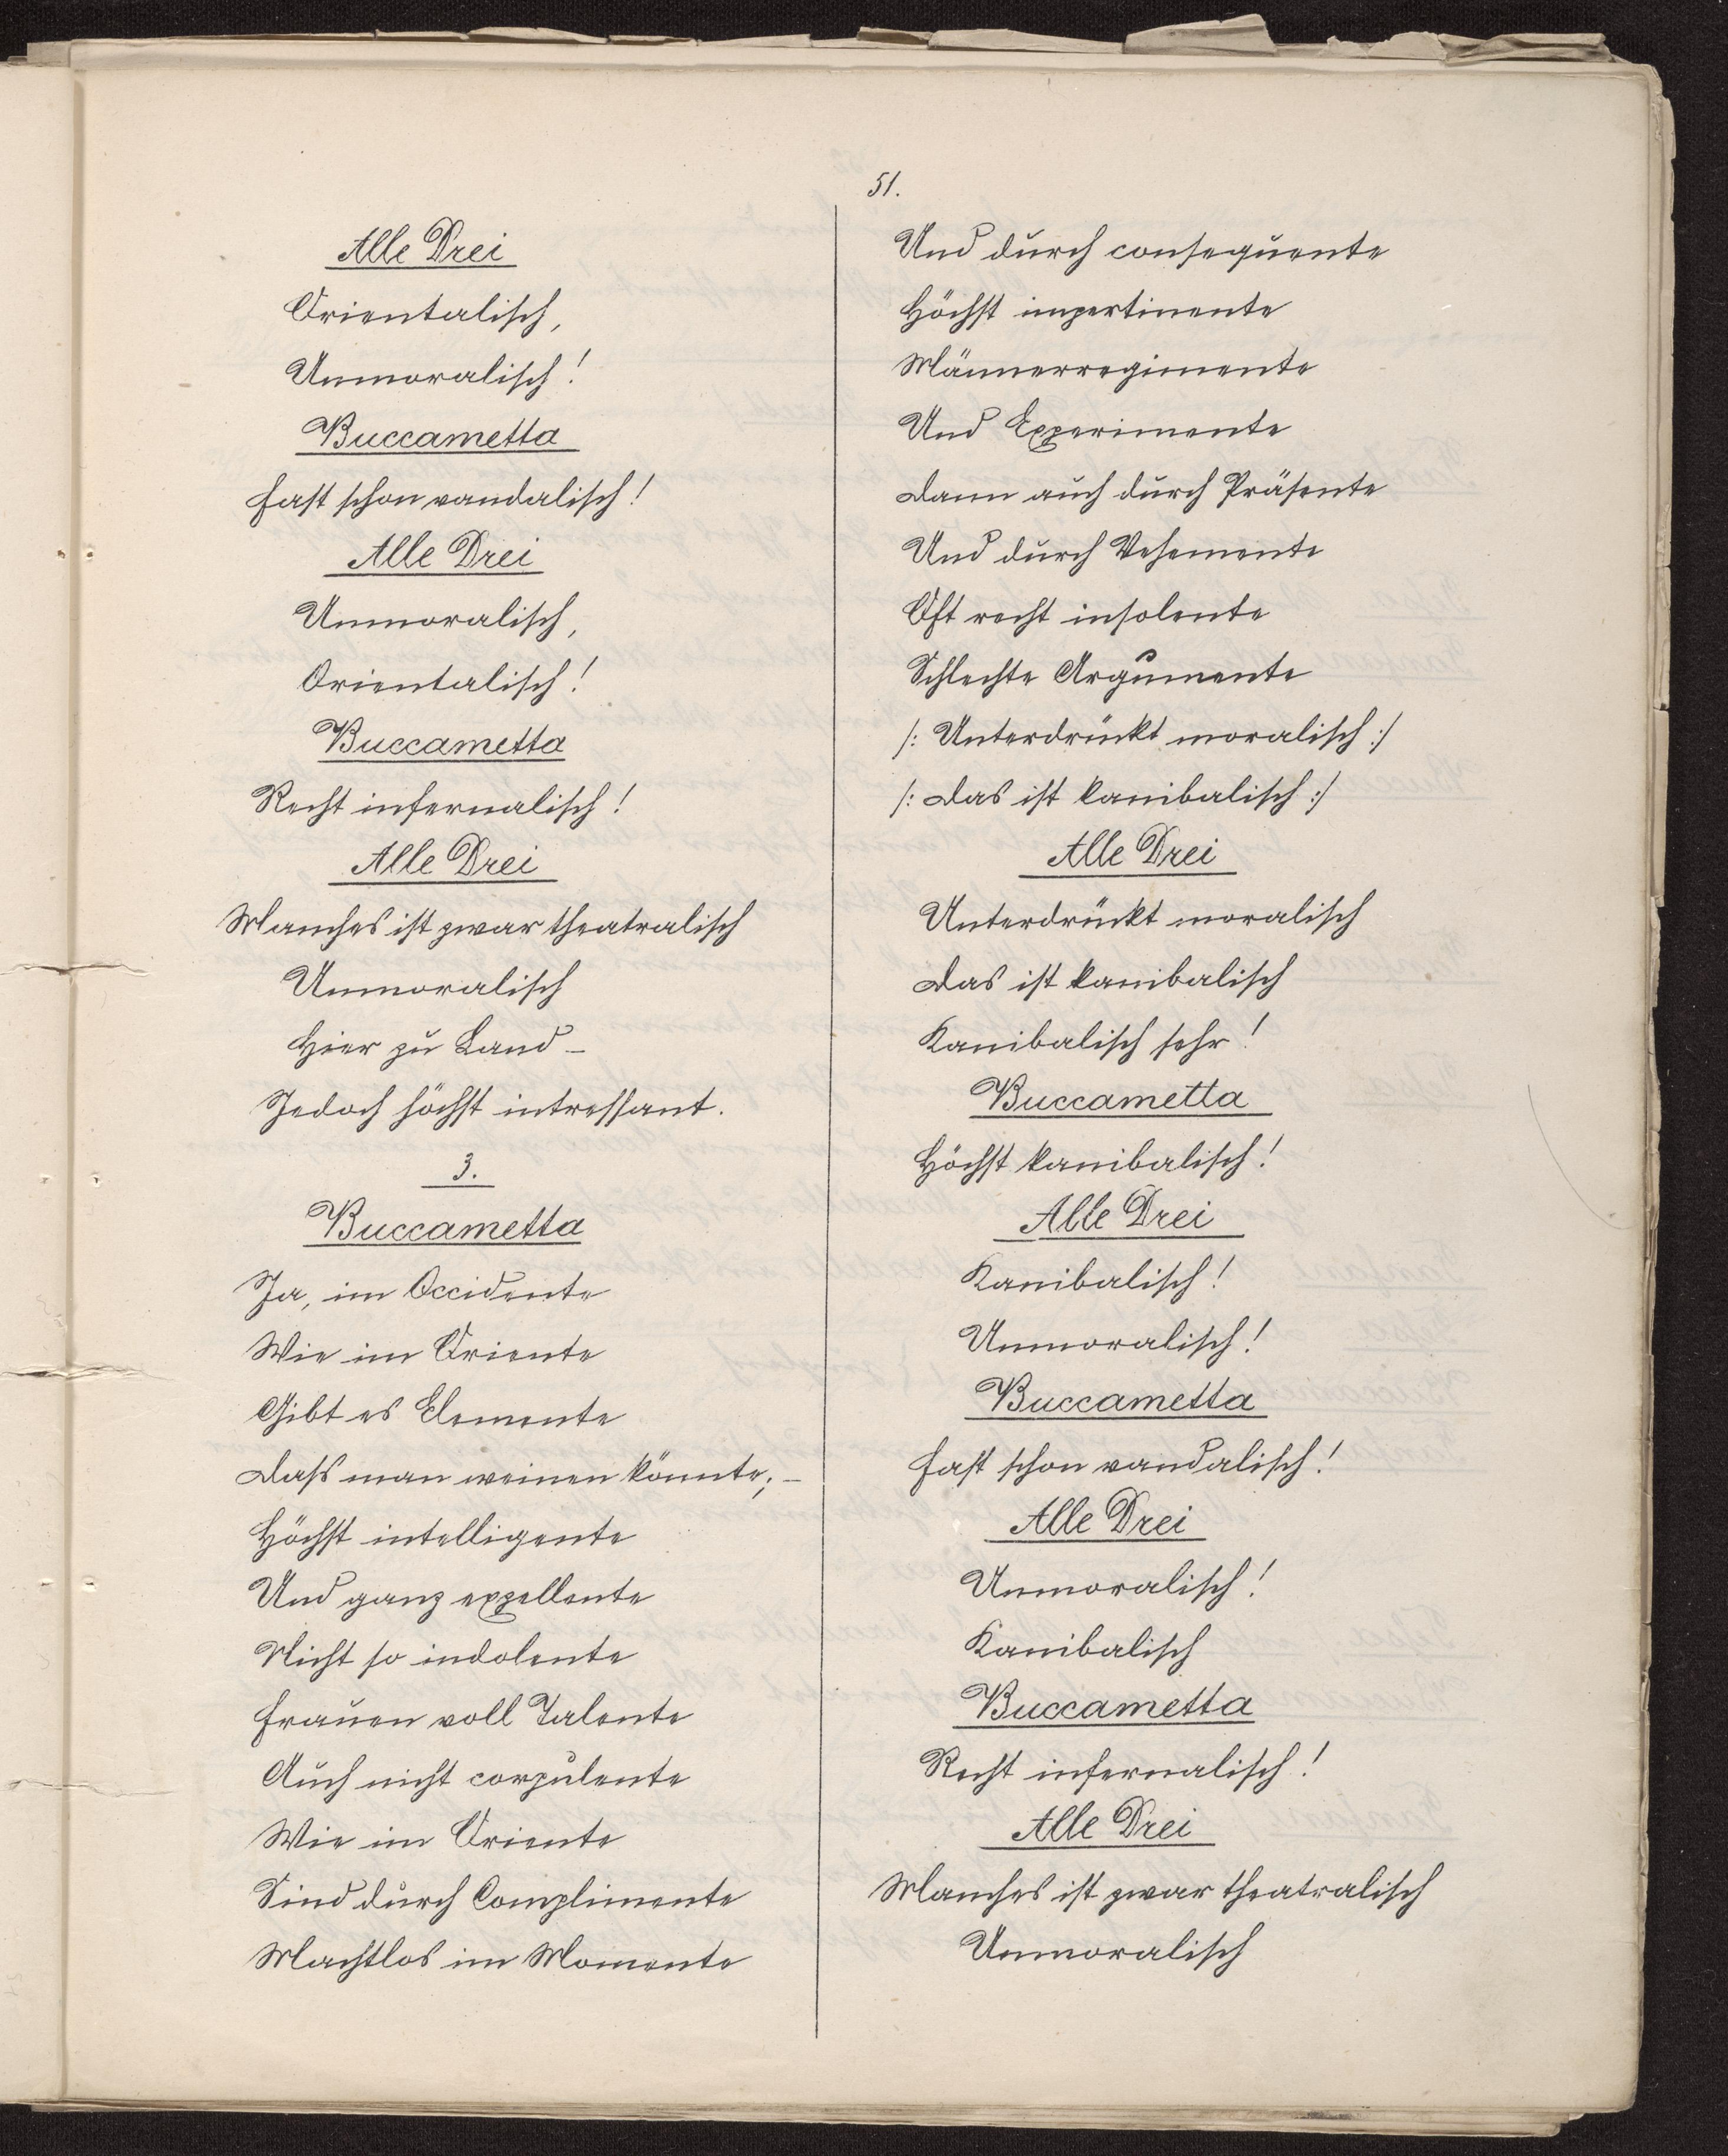 51.
Alle Drei
Orientalisch,
Unmoralisch!
Buccametta
Fast schon vandalisch!
Alle Drei
Unmoralisch,
Orientalisch!
Buccametta
Recht infernalisch!
Alle Drei
Manches ist zwar theatralisch
Unmoralisch
Hier zu Land –
Jedoch höchst intressant.
3.
Buccametta
Ja, im Occidente
Wie im Oriente
Gibt es Elemente
Dass man weinen könnte; –
Höchst intelligente
Und ganz exzellente
Nicht so indolente
Frauen voll Talente
Auch nicht corpulente
Wie im Oriente
Sind durch Complimente
Machtlos im Momente
Und durch consequente
Höchst impertinente
Männerregimente
Und Experimente
Dann auch durch Präsente
Und durch Vehemente
Oft recht insolente
Schlechte Argumente
/: Unterdrückt moralisch :/
/: Das ist kanibalisch :/
Alle Drei
Unterdrückt moralisch
Das ist kanibalisch
Kanibalisch sehr!
Buccametta
Höchst kanibalisch!
Alle Drei
Kanibalisch!
Unmoralisch!
Buccametta
Fast schon vandalisch!
Alle Drei
Unmoralisch!
Kanibalisch
Buccametta
Recht infernalisch!
Alle Drei
Manches ist zwar theatralisch
Unmoralisch